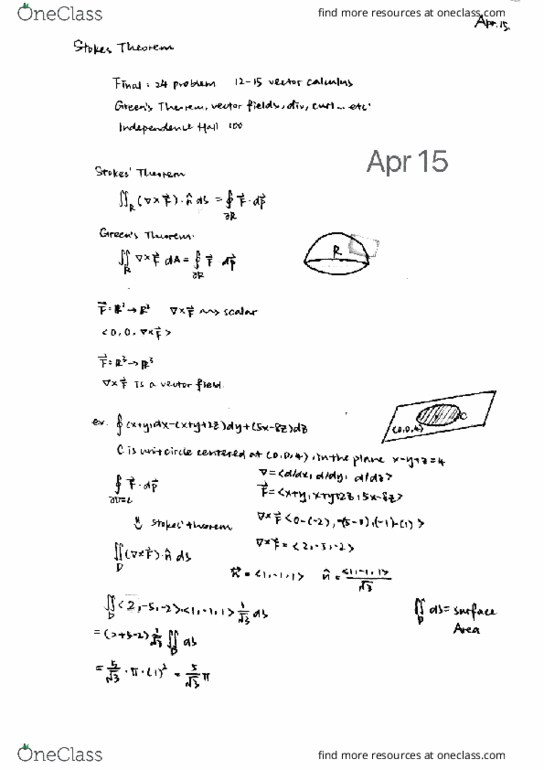 OneClass
find more resources at oneclass.com
Apr. 15.
Stokes Theorem
Final : 24 problem 12-15 vector calculus
Green's Theorem, vector fields, div, curl... etc
Independence Hall 100
Apr 15
Stokes' Theorem
∬_R (∇×F⃗)·n̂ ds = ∮_∂R F⃗·dp⃗
Green's Theorem.
∬_R ∇×F⃗ dA = ∮_∂R F⃗ dp⃗
R
F⃗ = ℝ² → ℝ² ∇×F⃗ ⇝ scalar
<0, 0, ∇×F⃗>
F⃗ = ℝ³ → ℝ³
∇×F⃗ is a vector field.
ex. ∮(x+y)dx-(x+y+2z)dy+(5x-8z)dz
(0,0,4) C
C is unit circle centered at (0,0,4), in the plane x-y+z=4
∇ = <d/dx, d/dy, d/dz>
∮_∂D=C F⃗·dp⃗
F⃗ = <x+y, x+y+2z, 5x-8z>
⇓ Stokes' theorem
∇×F⃗ <0-(-2), -(5-0), (-1)-(1)>
∇×F⃗ = <2, -5, -2>
∬_D (∇×F⃗)·n̂ ds
n⃗ = <1,-1,1> n̂ = <1,-1,1>/√3
∬_D <2,-5,-2>·<1,-1,1> 1/√3 ds
∬_D ds = surface Area
= (2+5-2) 1/√3 ∬_D ds
= 5/√3 · π · (1)² = 5/√3 π
OneClass
find more resources at oneclass.com